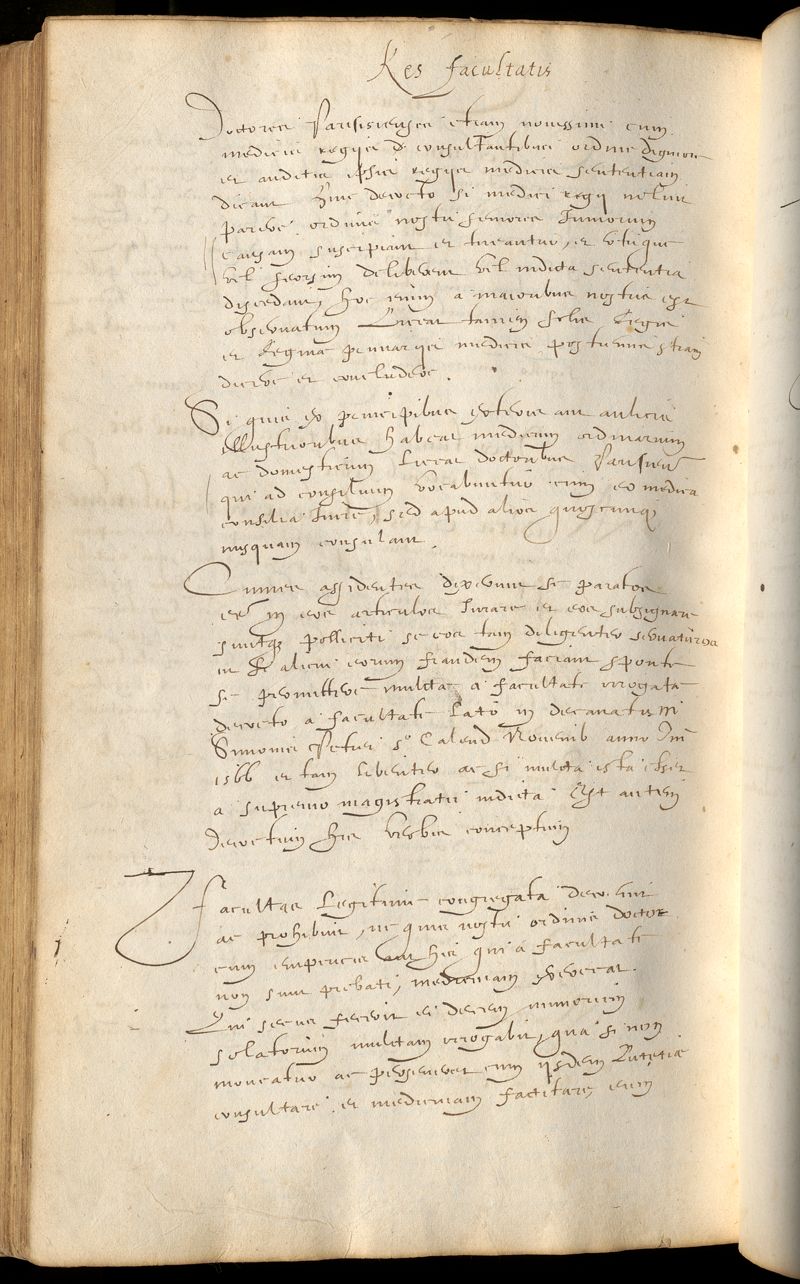 Res facultatis
Doctores Parisienses etiam novissimi cum
medicis regiis de consultantibus ordine digniore
et auditis ipsis regiis medicis sententiam
dicant. Hinc decreto si medici regii nolint
parere ordinis nostri seniores Juniorum
causam suscipiant et tueantur, et utrique
vel seorsim deliberent vel indicta sententia
discedant, hoc enim a maioribus nostris est
observatum Liceat tamen solis Regis
et Reginae primariis medicis postremis
dicere et concludere.
Si quis ex principibus exteris aut aulicis
illustrioribus habeat medicum ordinarium
ac domesticum Liceat doctoribus Parisien̄
qui ad consilium vocabuntur cum eo medica
consilia Inire, sed apud alios quoscunq;
nusquam consulant.
Omnes assidentes dixerunt se paratos
esse in eos articulos Jurare et eos subsignare
suntq; polliciti se eos tam diligenter servaturos
ut si alicui eorum fraudem faciant sponte
se promittere mulcta a facultate irrogata
decreto a facultate Lato in decanatu M
Simonis Petri 5º Calend Novemb anno Dni
1566 et tam libenter ac si mulcta ista esset
a supremo magistratu indicta Est autem
decretum his verbis conceptum
Facultas Legitime congregata decernit
ac prohibuit, ne quis nostri ordinis doctor
cum empiricis aut his qui a facultate
non sunt probati, medicinam exerceat.
Qui secus fecerit ei decem nummorum
solatorum mulctam irrogabit, qua si non
moveatur ac perseveret cum iisdem Lutetiae
consultare, et medicinam factitare, eum